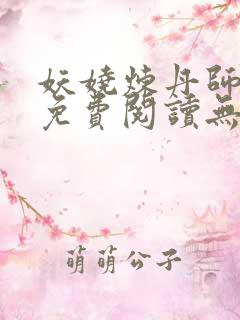 妖嬈煉丹師
免費閱讀無
萌萌公子